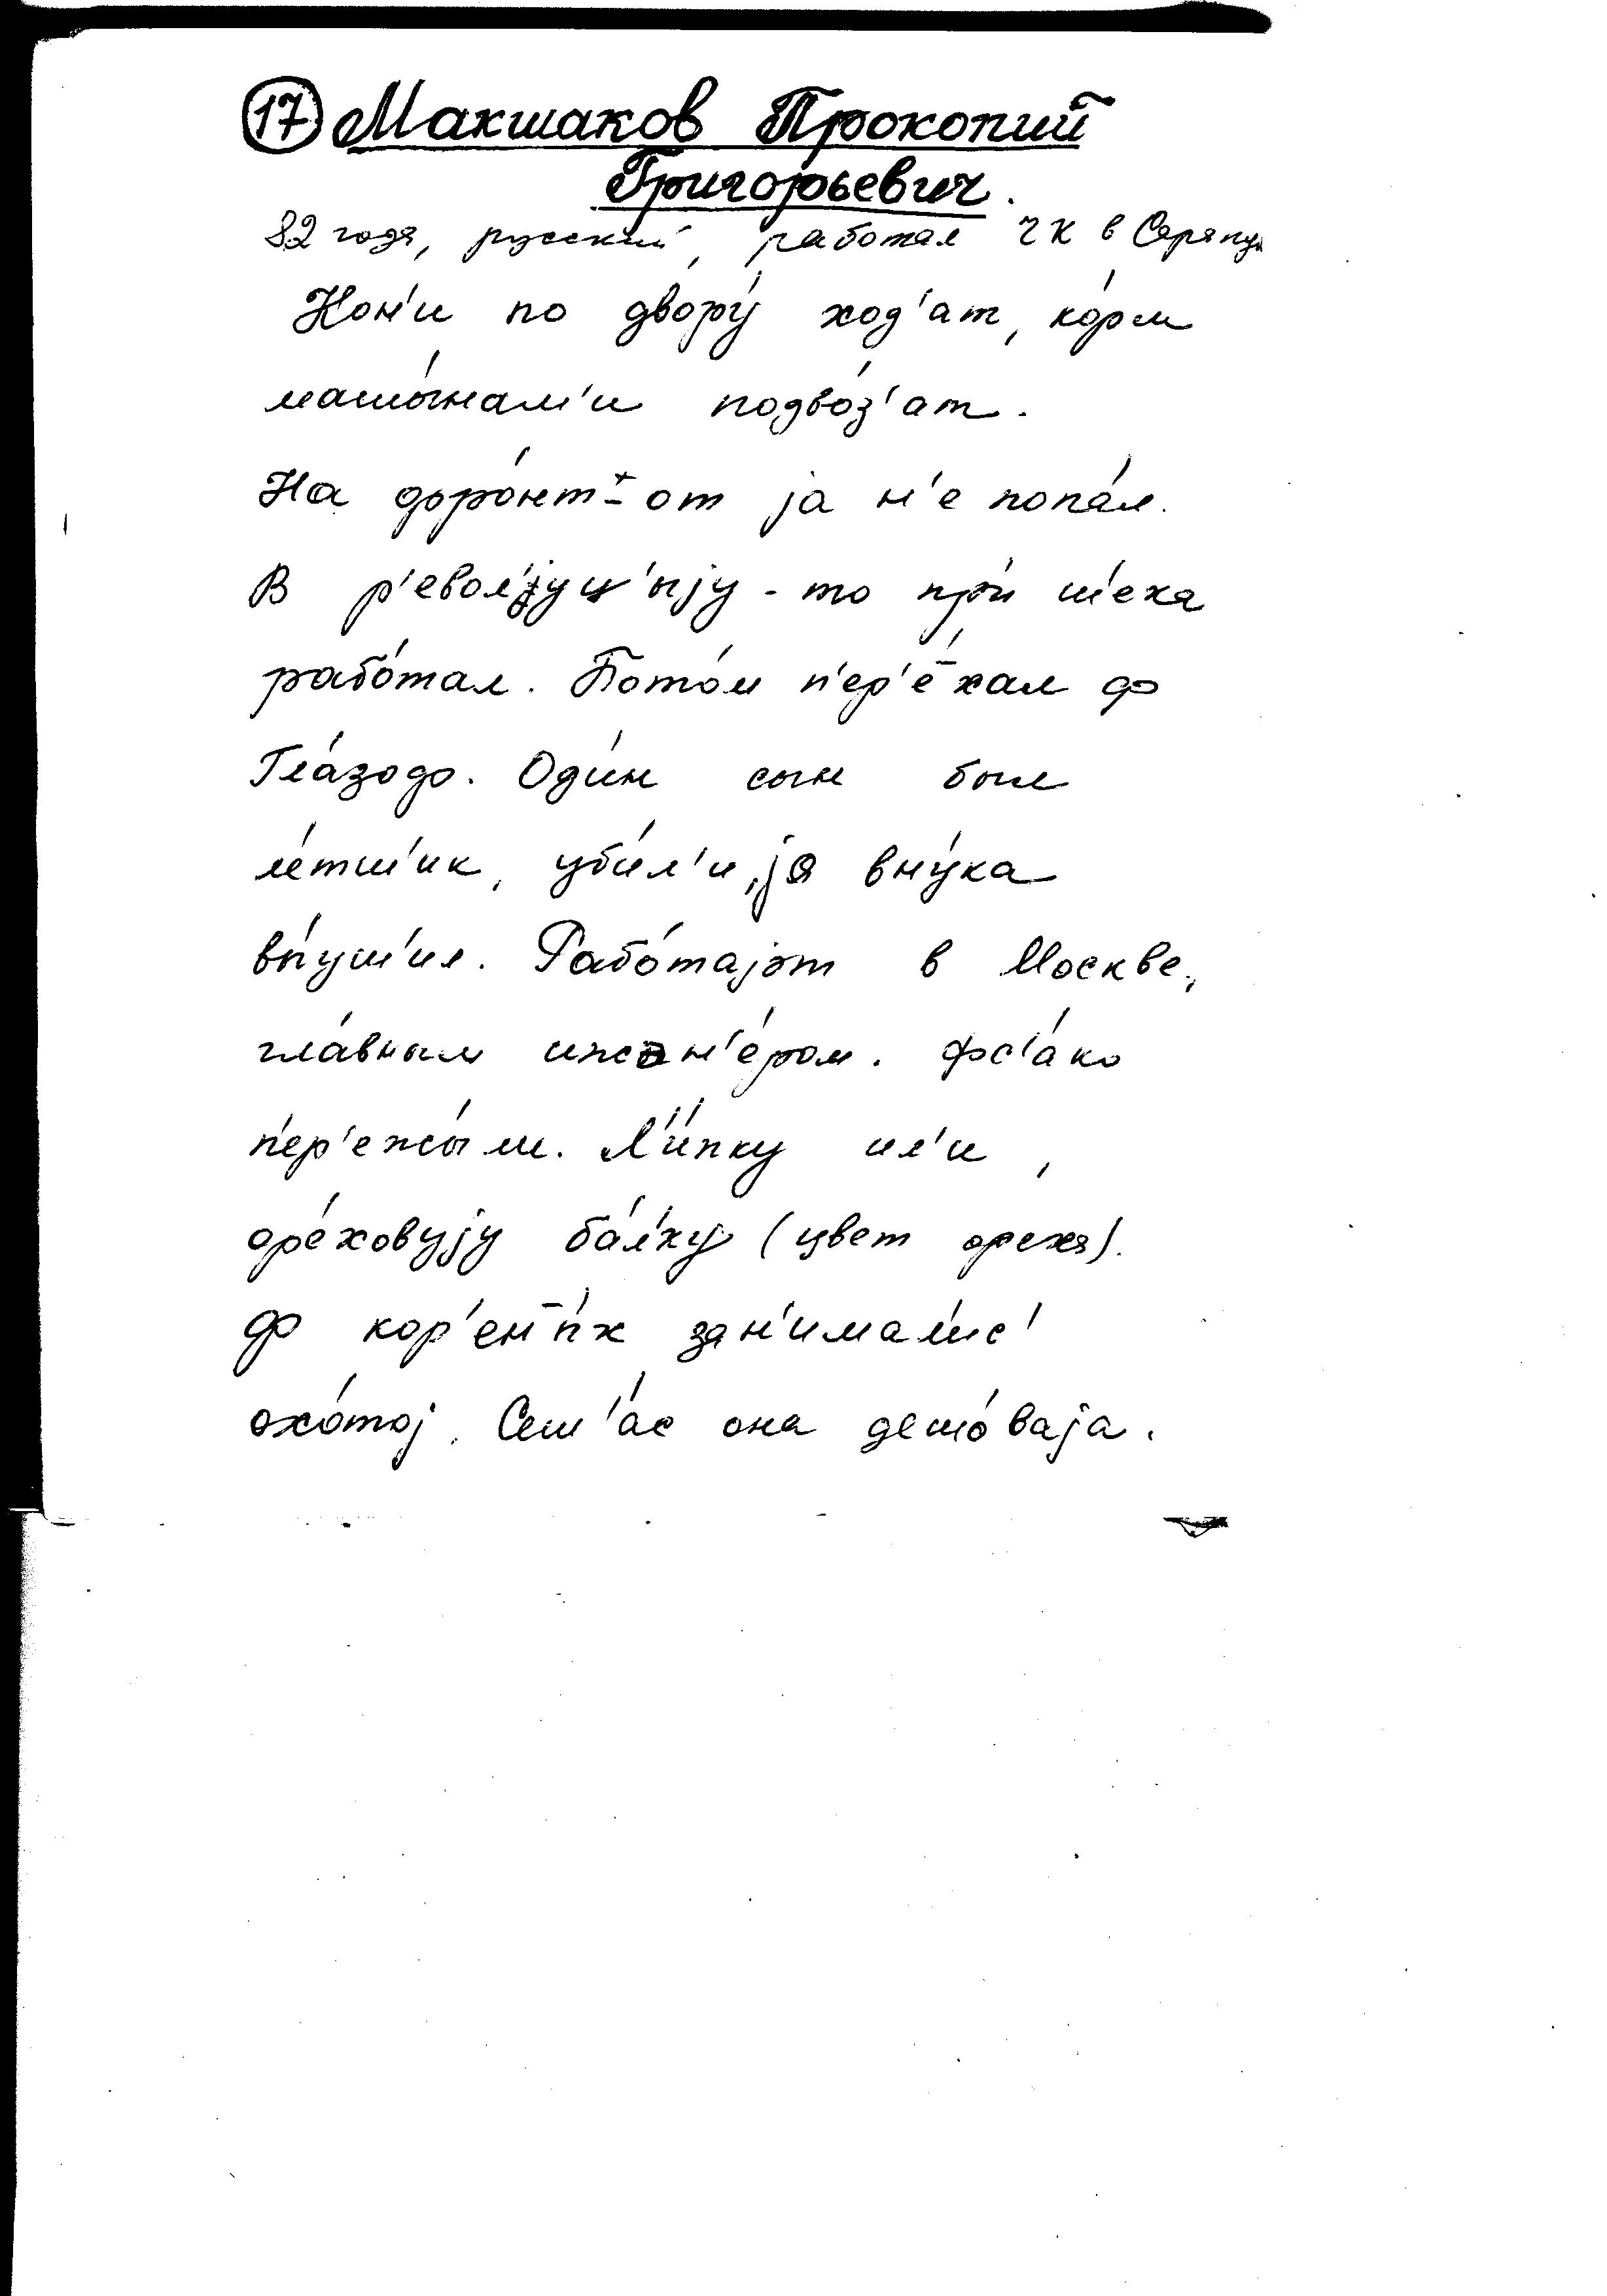 17 Макшаков Прокопий
Григорьевич.
82 года, русский, работал ЧК в Сарапул
Кон'и по двору́ ход'ат, ко́рм
машы́нам'и подво́з'ат.
На фро́нт-от jа н'е попа́л.
В р'евол'у́ц'ыjу-то при ч'ека
рабо́тал. Пото́м п'ер'е́хал ф
Гла́зоф. Оди́н сын был
л'етш'ик, уби́л'и, jа вну́ка
вы́уш'ил. Рабо́таjэт в Москве,
гла́вным инжэн'е́ром. Фс'а́ко
п'ер'ежы́ли. Л'и́пку ил'и,
оре́ховуjу ба́лку (цвет ореха).
Ф кор'ен'и́х зан'има́лис'
охо́тоj. Сеш'а́с она дешо́ваjа.